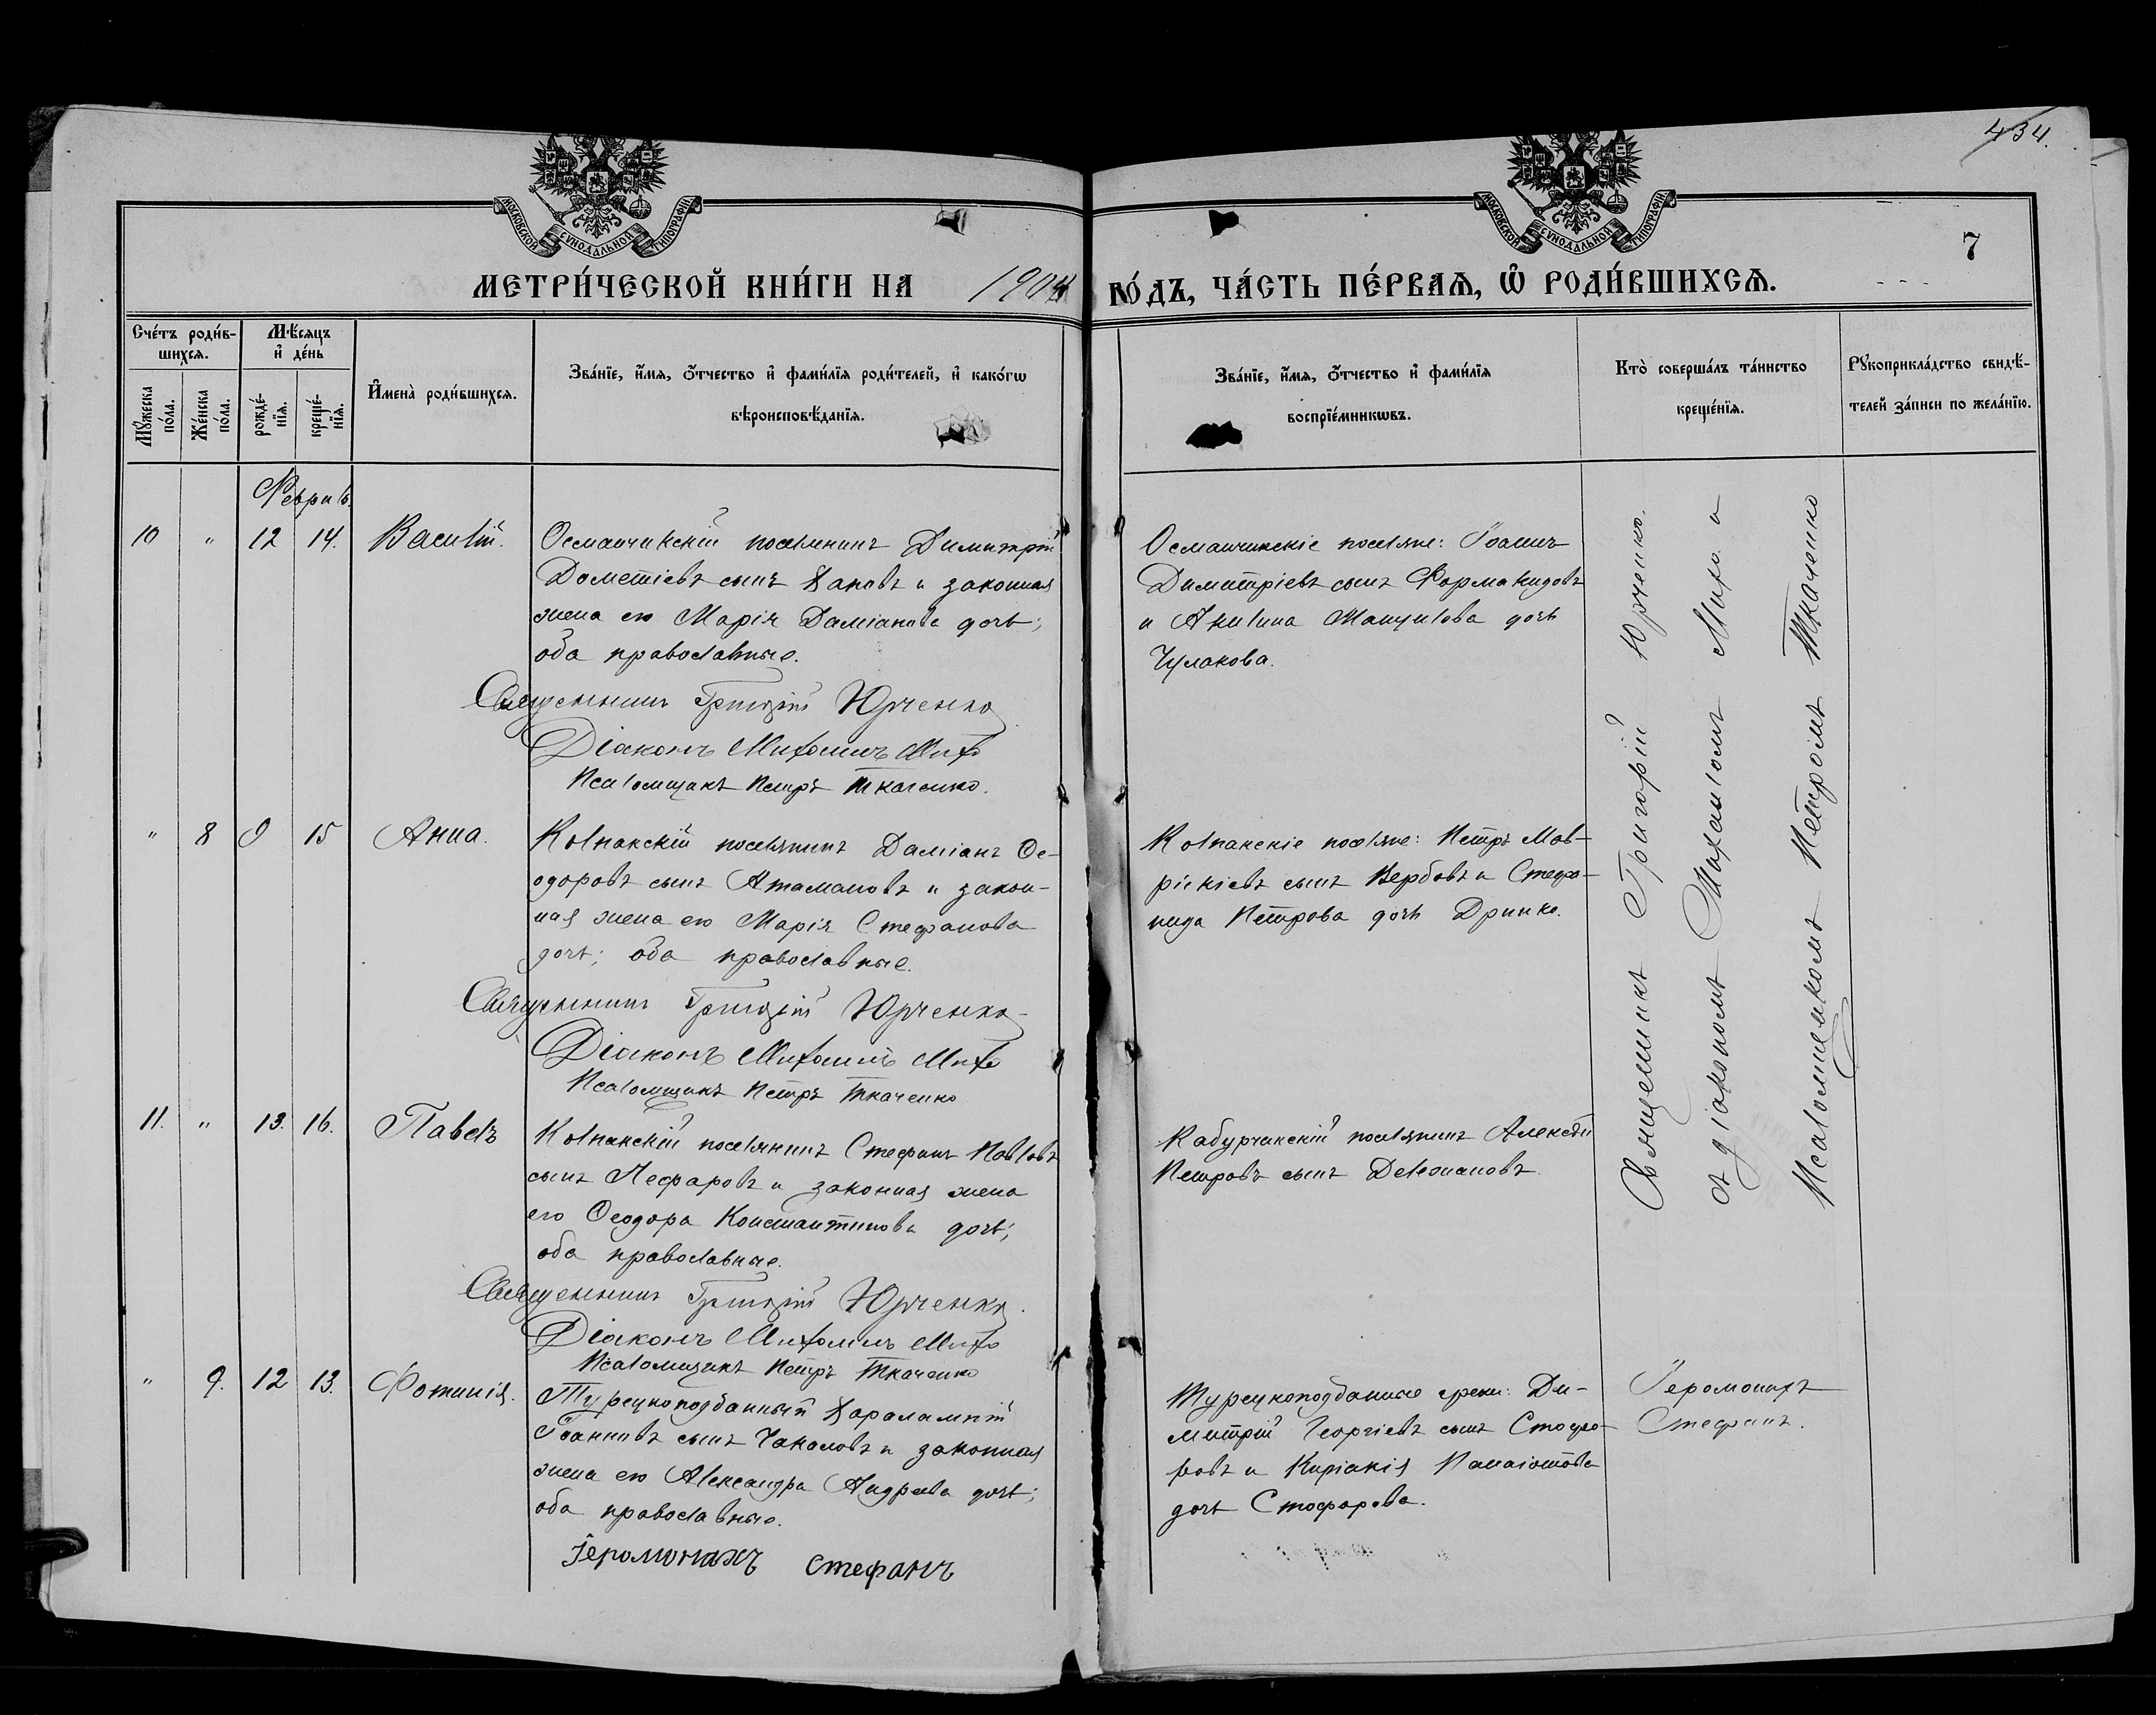 434.
МОСКОВСКОЙ СѴНОДАЛЬНОЙ ТИПОГРАФІИ
МОСКОВСКОЙ СѴНОДАЛЬНОЙ ТИПОГРАФІИ
7
МЕТРИ́ЧЕСКОЙ КНИ́ГИ НА 1904 ГО́ДЪ, ЧА́СТЬ ПЕ́РВАѦ, Ѡ҆ РОДИ́ВШИХСѦ.
Сче́тъ роди́в-
шихсѧ.
Мꙋ́жеска
по́ла.
Же́нска
по́ла.
Мѣ́сяцъ
и҆ де́нь
рожде́-
нїѧ.
креще́-
нїѧ.
И҆мена̀ роди́вшихсѧ.
Зва́нїе, и҆́мѧ, ѻ҆́тчество и҆ фами́лїѧ роди́телей, и҆ како́гѡ
вѣроисповѣ́данїѧ.
Зва́нїе, и҆́мѧ, ѻ҆́тчество и҆ фами́лїѧ
воспрїе́мникѡвъ.
Кто̀ соверша́лъ та́инство
креще́нїѧ.
Рꙋкоприкла́дство свидѣ́-
телей за́писи по жела́нїю.
Февраль.
10 " 12 14. Василій.
Османчикскій поселянинъ Димитрій
Дометіевъ сынъ Хановъ и законная
жена его Марія Даміанова дочь;
оба православные.
Священникъ Григорій Юрченко
Діаконъ Михаилъ Михо
Псаломщикъ Петръ Ткаченко.
Османчикскіе поселяне: Іоаннъ
Димитріевъ сынъ Формакидовъ
и Акилина Мануилова дочь
Чулакова.
Священникъ Григорій Юрченко.
съ діакономъ Михаиломъ Михо и
Псаломщикомъ Петромъ Ткаченко
" 8 9 15 Анна.
Колпакскій поселянинъ Даміанъ Ѳе-
одоровъ сынъ Атамановъ и закон-
ная жена его Марія Стефанова
дочь; оба православные.
Священникъ Григорій Юрченко
Діаконъ Михаилъ Михо
Псаломщикъ Петръ Ткаченко
Колпакскіе поселяне: Петръ Мав-
рикіевъ сынъ Вербовъ и Стефа-
нида Петрова дочь Дринко.
11. " 13. 16. Павелъ
Колпакскій поселянинъ Стефанъ Павловъ
сынъ Лефаровъ и законная жена
его Ѳеодора Константинова дочь;
оба православные.
Священникъ Григорій Юрченко.
Діаконъ Михаилъ Михо
Псаломщикъ Петръ Ткаченко
Кабурчакскій поселянинъ Алексѣй
Петровъ сынъ Делжановъ
" 9. 12 13. Фотинія.
Турецкоподданный Харалампій
Іоанновъ сынъ Чакаловъ и законная
жена его Александра Андреева дочь;
оба православные.
Іеромонахъ Стефанъ
Турецкоподданные греки: Ди-
митрій Георгіевъ сынъ Стофо-
ровъ и Киріакія Панаіотова
дочь Стофорова.
Іеромонахъ
Стефанъ.